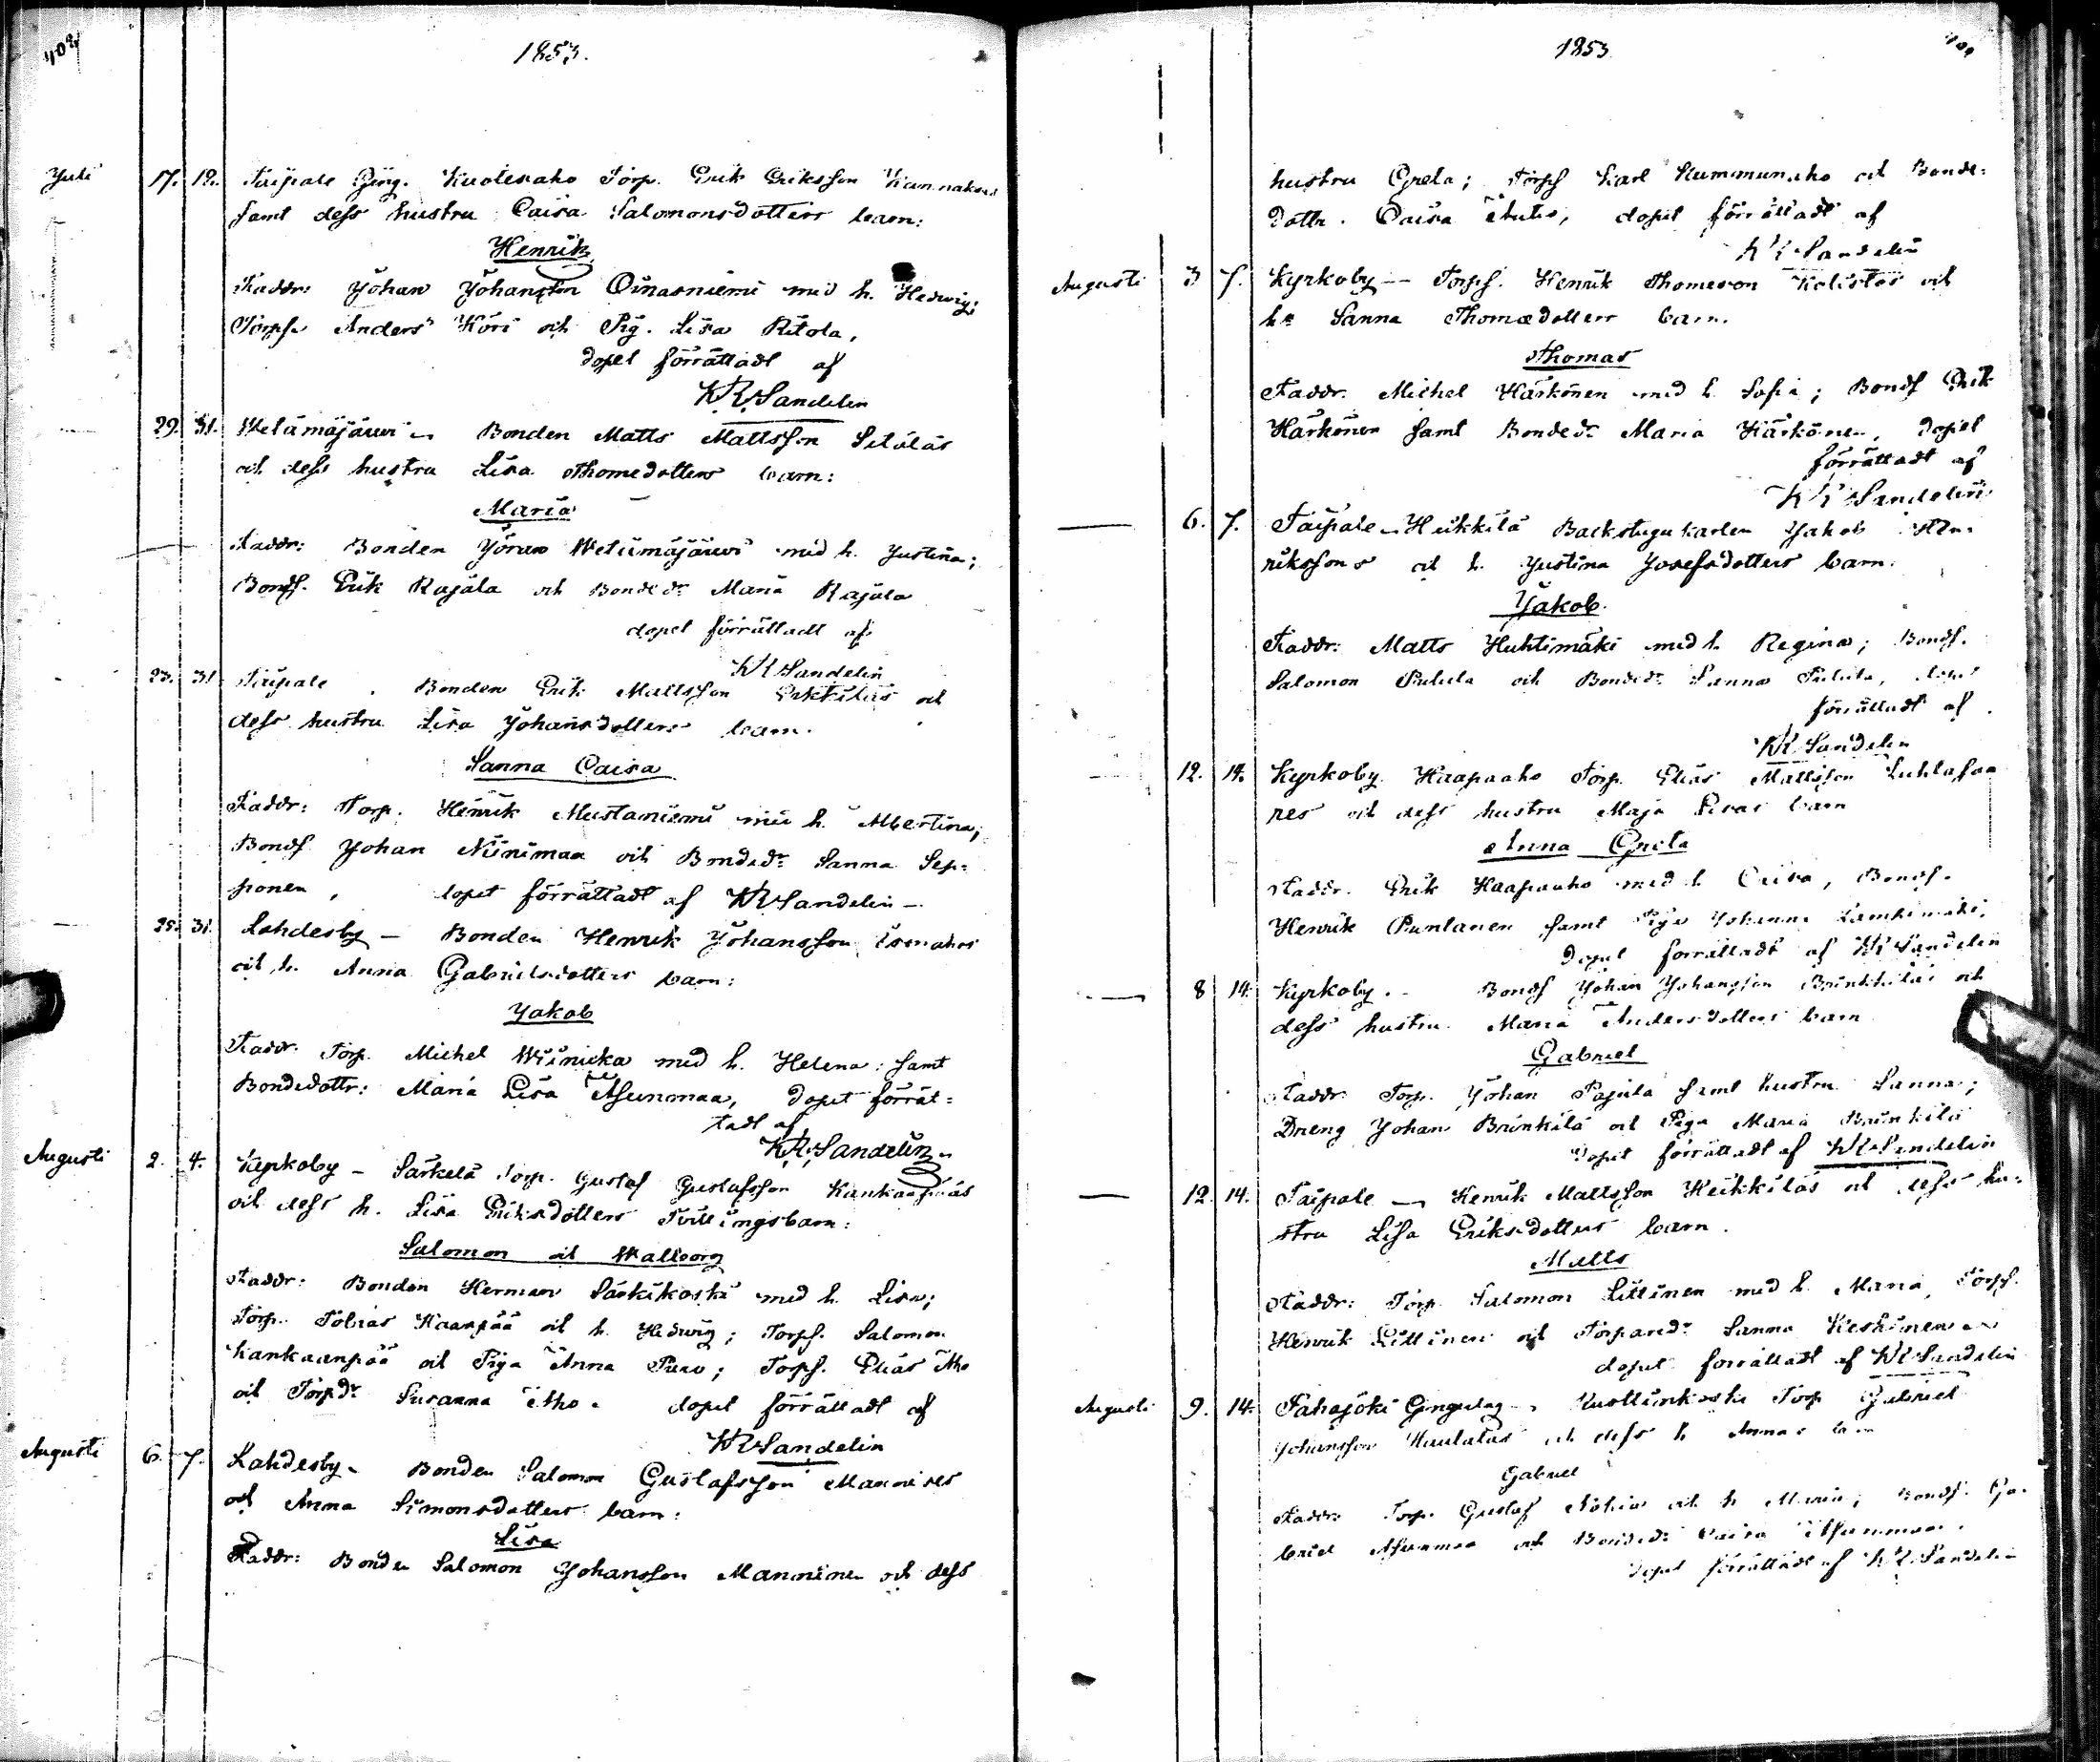 402
1853.
Juli 17. 19. Taipale Ging. Kuotesaho Torp. Erik Eriksson
samt dess hustru Caisa Salomonsdotters barn:
Henrik
Faddr: Johan Johansson Oinasniemi med h. Hedwig;
Torpss Anders Köri och Pig. Lisa Ritola,
dopet förrättadt af
KR Sandelin
29. 31. Wetämäjärwi - Bonden Matts Mattsson
och dess hustru Lisa Thomedotters barn:
Maria
Faddr: Bonden Jöran Wetämäjärwi med h. Justina;
Bonds. Erik Rajala och Bondedr Maria Rajala
dopet förrättadt af
KR Sandelin
23. 31 Taipale . Bonden Erik Mattsson och
dess hustru Lisa Johansdotters barn.
Sanna Caisa
Faddr: Torp. Henrik Mustaniemi med h. Albertina;
Bonds Johan Niinimaa och Bondedr Sanna Sep=
ponen, dopet förrättadt af KR Sandelin -
25. 31. Lahdesby - Bonden Henrik Johansson Isonahos
och h. Anna Gabrielsdotters barn:
Jakob
Faddr. Torp. Michel Wiinicka med h. Helena: samt
Bondedottr: Maria Lisa Asunmaa, dopet förrät=
tadt af
KR Sandelin
Augusti 2. 4. Kyrkoby - Särkelä Torp. Gustaf Gustafsson Kankaanpääs
och dess h. Lisa Eriksdotters Tvillingsbarn:
Salomon och Walborg
Faddr: Bonden Herman Särkikoski med h. Lisa;
Torp. Tobias Kaanpää och h. Hedwig; Torps. Salomon
Kankaanpää och Piga Anna Puro; Torps. Elias Aho
och Torpdr Susanna Aho. dopet förrättadt af
KR Sandelin
Augusti 6. 7. Lahdesby - Bonden Salomon Gustafsson Manninens
och Anna Simonsdotters barn:
Lisa
Faddr: Bonden Salomon Johansson Manninen och dess
1853
hustru Greta; Torps Karl Kummunaho och Bonde=
dottr. Caisa Autio, dopet förrättadt af
KR Sandelin
Augusti 3 7. Kyrkoby - Torps. Henrik Thomeson och
hs Sanna Thomædotters barn.
Thomas
Faddr. Michel Härkönen med h. Sofia; Bonds Erik
Härkönen samt Bondedr Maria Härkönen, dopet
förrättadt af
KR Sandelin
6. 7. Taipale - Heikkilä Backstugukarlen Jakob Hen=
rikssons och h. Justina Josefsdotters barn.
Jakob.
Faddr: Matts Huhtimäki med h. Regina; Bonds.
Salomon och Bondedr Sanna
förrättadt af
KR Sandelin
12. 14. Kyrkoby Haapaaho Torp. Elias Mattsson Luhtasaa
res och dess hustru Maja Lisas barn
Anna Greta
Faddr. Erik Haapaaho med h Caisa, Bonds.
Henrik Puntanen samt Piga Johanna Lamminmäki,
Dopet förrättadt af KR Sandelin
8 14. Kyrkoby. - Bonds Johan Johansson och
dess hustru Maria Andersdotters barn
Gabriel
Faddr. Torp. Johan Pajula samt hustru Sanna;
Dreng Johan och Piga Maria
Dopet förrättadt af KR Sandelin
12. 14. Taipale - Henrik Mattsson Heikkiläs och dess hu=
stru Lisa Eriksdotters barn.
Matts
Faddr: Torp. Salomon Littinen med h. Maria, Torps.
Henrik Littinen och Torparedr Sanna Keskinen
dopet förrättadt af KR Sandelin
Augusti 9. 14. Pahajöki Gingerlag - Torp Gabriel
Johansson och dess h Annas barn
Gabriel
Faddr: Torp. Gustaf och h Maria; Bonds. Ga=
briel Asunmaa och Bondedr Caisa Asunmaa.
Dopet förrättadt af KR Sandelin